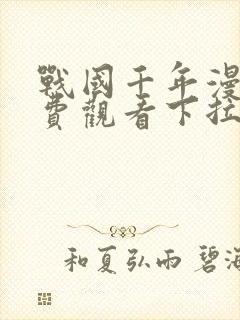 戰國千年漫
費觀看下拉
和夏弘雨 碧海